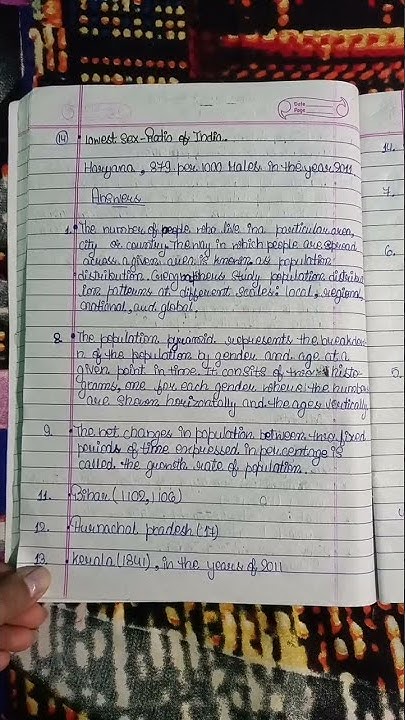 Date
Page
(14) • Lowest Sex-Ratio of India.
Haryana, 879 per 1000 Males in the year 2011
Answers
1. • The number of people who live in a particular area,
city or country. The way in which people are spread
across a given area is known as population
distribution. Geographers study population distribut
ion patterns at different scales: local, regional,
national, and global.
8. • The population pyramid represents the breakdow
n of the population by gender and age at a
given point in time. It consits of two histo-
grams, one for each gender where the number
are shown horizontally and the ages vertically.
9. • The net changes in population between two fixed
periods of time expressed in percentage is
called the growth rate of population.
11. • Bihar (1102, 1106)
12. • Arunachal pradesh (17)
13. • Kerala (1841), in the years of 2011
14.
7.
6.
5.